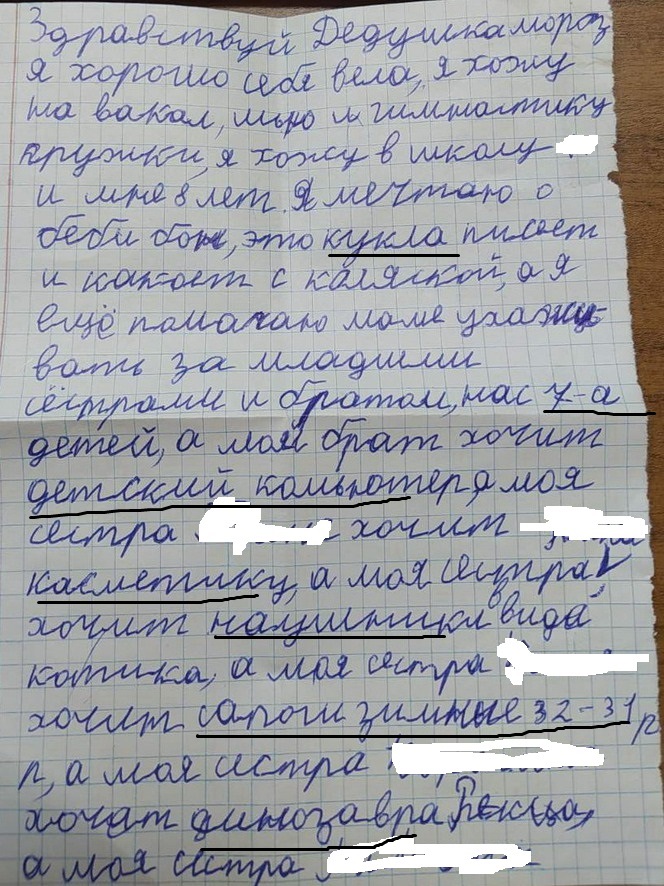 Здравствуй Дедушка мороз
я хорошо себя вела, я хожу
на вакал, ИЗО и гимнастику
кружки, я хожу в школу
и мне 8 лет. Я мечтаю о
беби бон, это кукла писает
и какает с каляской, а я
ещё памагаю маме ухажи-
вать за младшими
сёстрами и братом, нас 7-а
детей, а мой брат хочит
детский компютер, а моя
сестра хочит
касметику, а моя сестра
хочит наушники в виде
котика, а моя сестра
хочит сапоги зимные 32-31 р
р, а моя сестра
хочат динозавра Рекса,
а моя сестра